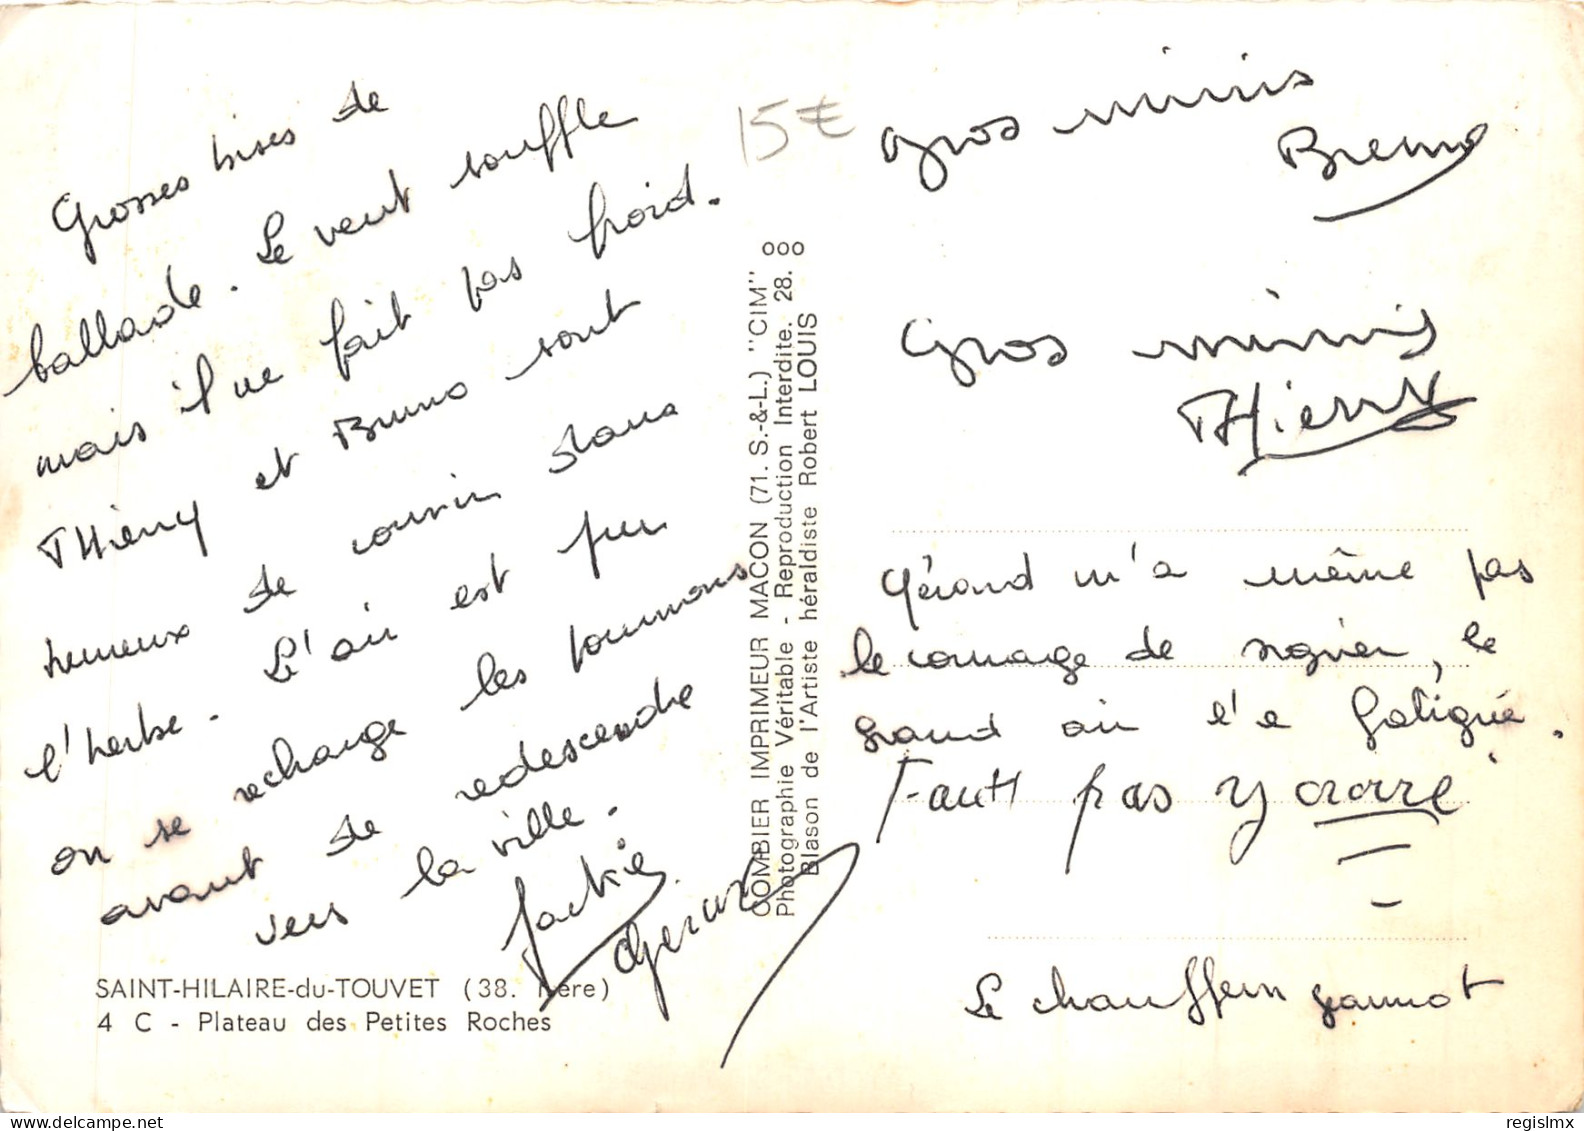 Grosses bises de
ballade. Le vent souffle
mais il ne fait pas froid.
Thierry et Bruno sont
heureux de courir dans
l'herbe. L'air est pur
on se recharge les poumons
avant de redescendre
vers la ville.
Jackie
Gérard
SAINT-HILAIRE-du-TOUVET (38. Isère)
4 C - Plateau des Petites Roches
15€
COMBIER IMPRIMEUR MACON (71. S.-&-L.) "CIM"
Photographie Véritable - Reproduction Interdite. 28. ooo
Blason de l'Artiste héraldiste Robert LOUIS
Gros mimis
Bruno
Gros mimis
THierry
Gérard m'a même pas
le courage de signer, le
grand air l'a fatigué.
Faut pas y croire
Le chauffeur Jeannot
regislmx